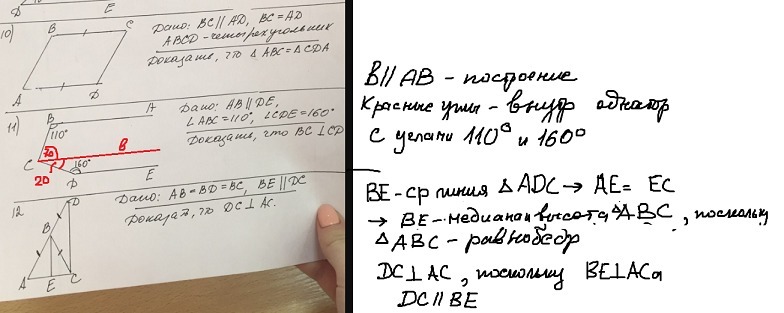 D E
10) B C
A D
Дано: BC || AD, BC = AD
ABCD - четырехугольник
Доказать, что △ ABC = △ CDA
11) B A
110°
70 B
C 160°
20 D E
Дано: AB || DE,
∠ABC = 110°, ∠CDE = 160°
Доказать, что BC ⊥ CD
12 D
B
A E C
Дано: AB = BD = BC, BE || DC
Доказать, что DC ⊥ AC.
B || AB - построение
Красные углы - внутр однатор
с углами 110° и 160°
BE - ср линия △ ADC → AE = EC
→ BE - медиана и высота △ABC, поскольку
△ ABC - равнобедр
DC ⊥ AC, поскольку BE ⊥ AC а
DC || BE